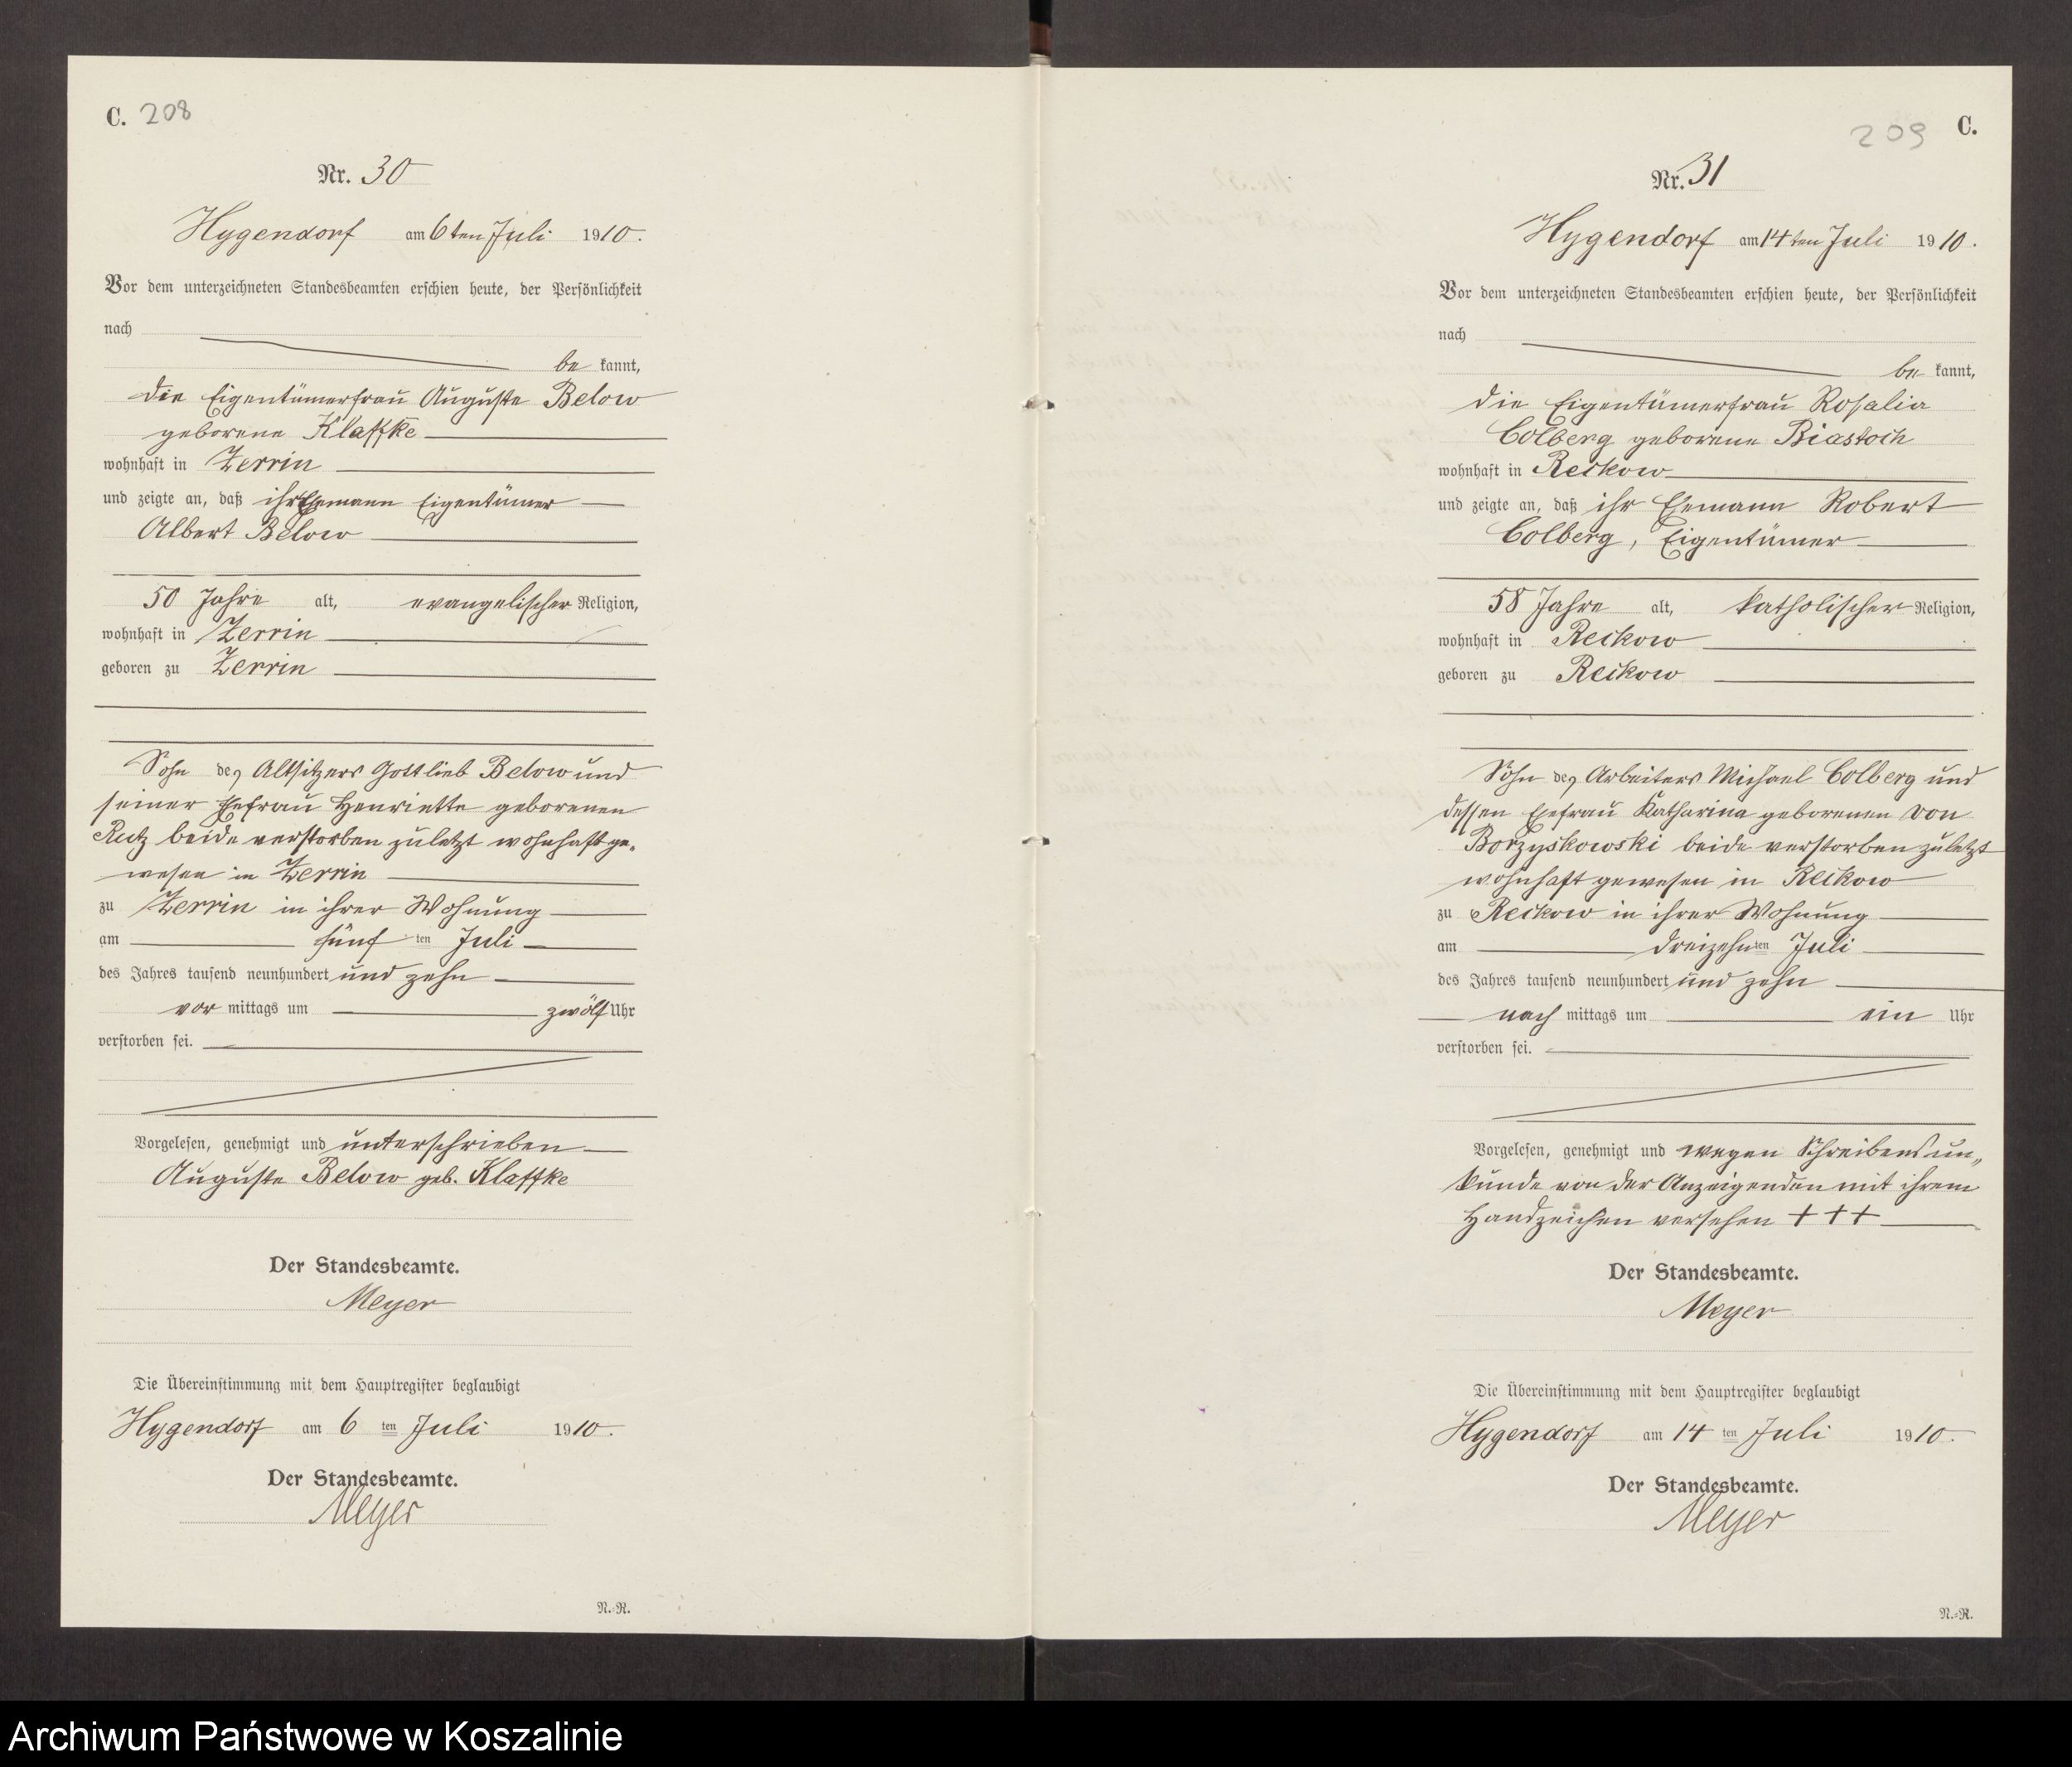 C. 208
Nr. 30
Hygendorf am 6ten Juli 1910.
Vor dem unterzeichneten Standesbeamten erschien heute, der Persönlichkeit
nach
be kannt,
die Eigentümerfrau Auguste Below
geborene Klaffke
wohnhaft in Zerrin
und zeigte an, daß ihr Ehemann Eigentümer
Albert Below
50 Jahre alt, evangelischer Religion,
wohnhaft in Zerrin
geboren zu Zerrin
Sohn des Altsitzers Gottlieb Below und
seiner Ehefrau Henriette geborenen
Rutz beide verstorben zuletzt wohnhaft ge-
wesen in Zerrin
zu Zerrin in ihrer Wohnung
am fünf ten Juli
des Jahres tausend neunhundert und zehn
vor mittags um zwölf Uhr
verstorben sei.
Vorgelesen, genehmigt und unterschrieben
Auguste Below geb. Klaffke
Der Standesbeamte.
Meyer
Die Übereinstimmung mit dem Hauptregister beglaubigt
Hygendorf am 6 ten Juli 1910.
Der Standesbeamte.
Meyer
N.-R.
209 C.
Nr. 31
Hygendorf am 14ten Juli 1910.
Vor dem unterzeichneten Standesbeamten erschien heute, der Persönlichkeit
nach
be kannt,
die Eigentümerfrau Rosalia
Colberg geborene Biastoch
wohnhaft in Reckow
und zeigte an, daß ihr Ehemann Robert
Colberg, Eigentümer
58 Jahre alt, katholischer Religion,
wohnhaft in Reckow
geboren zu Reckow
Sohn des Arbeiters Michael Colberg und
dessen Ehefrau Katharina geborenen von
Borzyskowski beide verstorben zuletzt
wohnhaft gewesen in Reckow
zu Reckow in ihrer Wohnung
am dreizehn ten Juli
des Jahres tausend neunhundert und zehn
nach mittags um ein Uhr
verstorben sei.
Vorgelesen, genehmigt und wegen Schreibensun-
kunde von der Anzeigenden mit ihrem
Handzeichen versehen + + +
Der Standesbeamte.
Meyer
Die Übereinstimmung mit dem Hauptregister beglaubigt
Hygendorf am 14 ten Juli 1910.
Der Standesbeamte.
Meyer
N.-R.
Archiwum Państwowe w Koszalinie